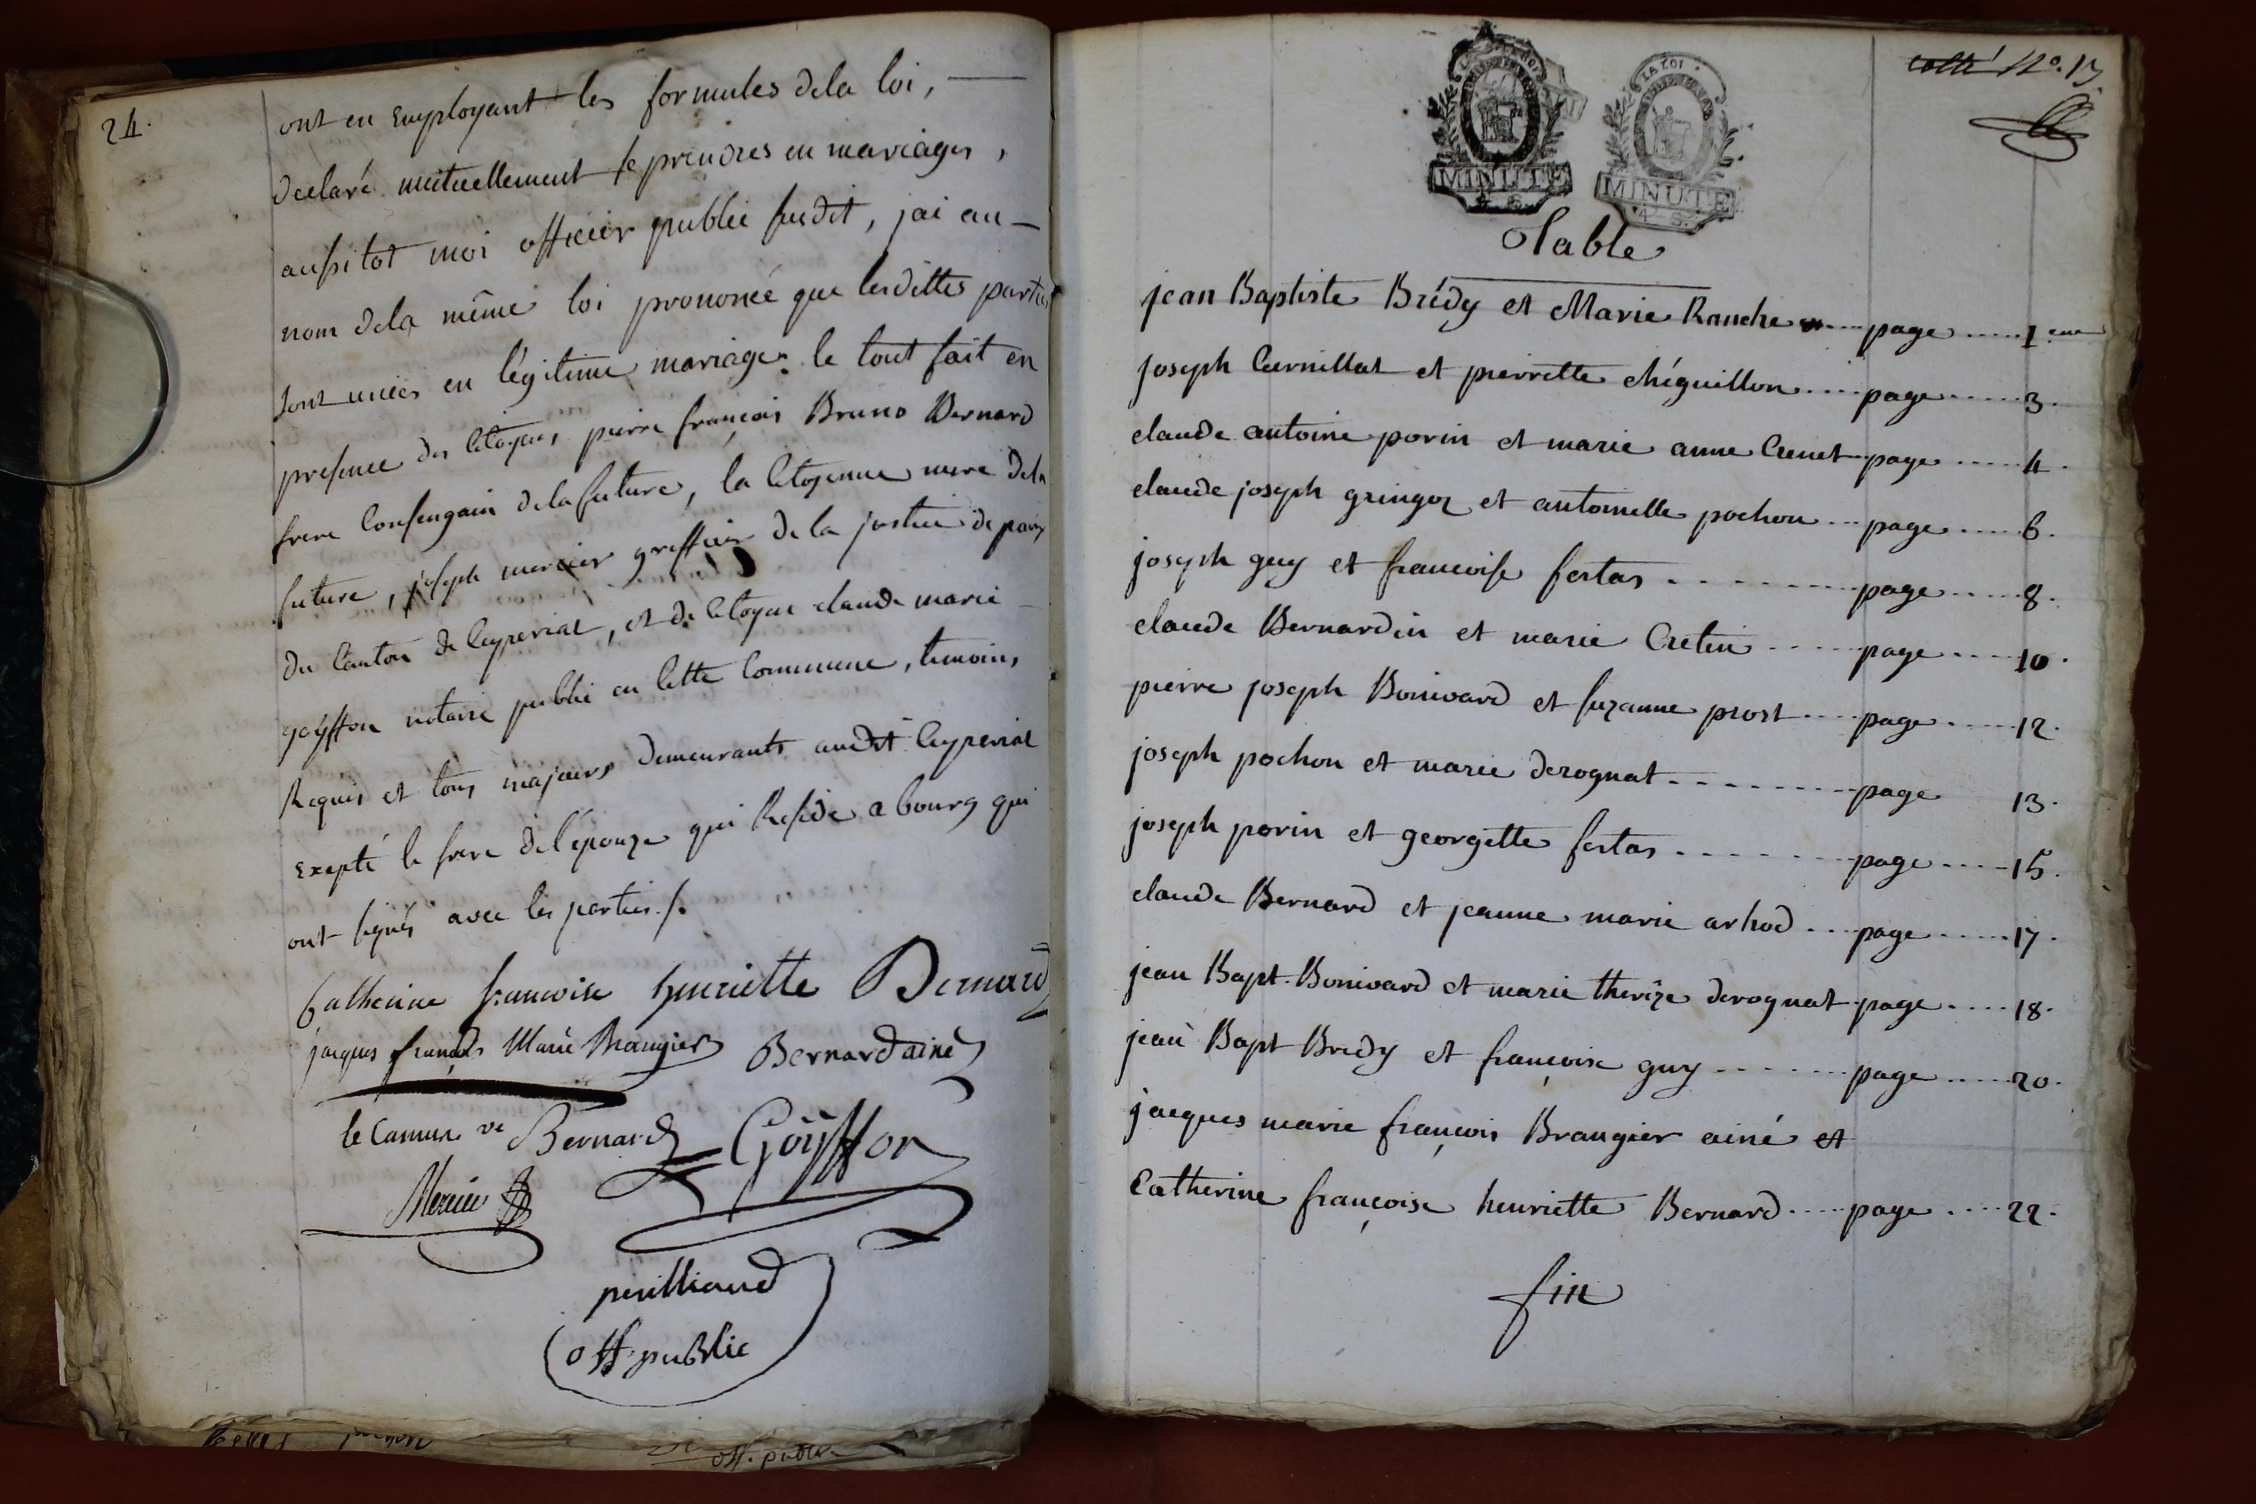 24.
ont en Employant les formules dela loi,
declaré mutuellement se prendres en mariages,
aussitot moi officier public susdit, jai au-
nom dela même loi prononcé que lesdittes parties
sont unies en légitime mariage. le tout fait en
presence des Citoyens pierre françois Bruno Bernard
frere Consengain dela future, la Citoyenne mere dela
future, joseph mercier greffier de la justice de paix
du Canton de Ceyzeriat, et du Citoyen claude marie
goyffon notaire public en Cette Commune, temoins
Requis et tous majeurs demeurants audit Ceyzeriat
Exepté le frere de l'épouze qui Reside a bourg qui
ont signés avec les parties./.
Catherine francoise henriette Bernard
jacques françois Marie Brangier Bernard ainé
le Camus ve Bernard Goÿffon
Mercier
perilliand
off. public
off. public
cotté No. 13
LA LOI
MINUTE
4. S.
LA LOI
MINUTE
4. S.
Table
jean Baptiste Brédy et Marie Ranche .... page ..... 1.ere
joseph Curnillat et pierrette chéguillon .... page ..... 3.
claude antoine porin et marie anne Cuenet page ..... 4.
claude joseph gringoz et antoinette pochon ... page ..... 6.
joseph guy et francoise fertas ........ page ..... 8.
claude Bernardin et marie Cretin ..... page .... 10.
pierre joseph Bonivard et suzanne prost .... page ..... 12.
joseph pochon et marie derognat ......... page 13.
joseph porin et georgette fertas ........ page .... 15.
claude Bernard et jeanne marie arhod ... page ..... 17.
jean Bapt. Bonivard et marie thereze derognat page .... 18.
jean Bapt Bredy et françoise guy ....... page ..... 20.
jacques marie françois Brangier ainé et
Catherine françoise henriette Bernard .... page .... 22.
fin